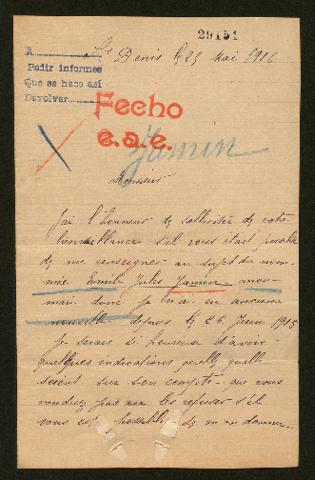 29151
St Denis le 25 Mai 1916
A
Pedir informes
Que se haco así
Devolver
Fecho
e.a.e.
Jamin
Monsieur
J'ai l'honneur de solliciter de votre
bienveillance s'il vous était possible
de me renseigner au sujet du nom-
mée Emile Jules Jamin mon
mari dont je n'ai eu aucune
nouvelle depuis le 26 Juin 1915
Je serais si heureuse d'avoir
quelques indications quelle quelle
soient sur son compte que vous
voudrez pas me les refuser s'il
vous est possible de m'en donner.